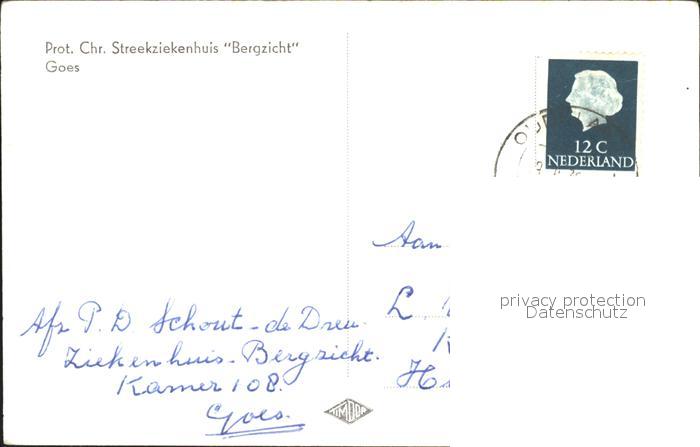 Prot. Chr. Streekziekenhuis "Bergzicht"
Goes
12 C
NEDERLAND
Aan
L.
H
privacy protection
Datenschutz
Afz P. D Schout-de Dreu.
Ziekenhuis-Bergzicht.
Kamer 108.
Goes.
TIMDOR